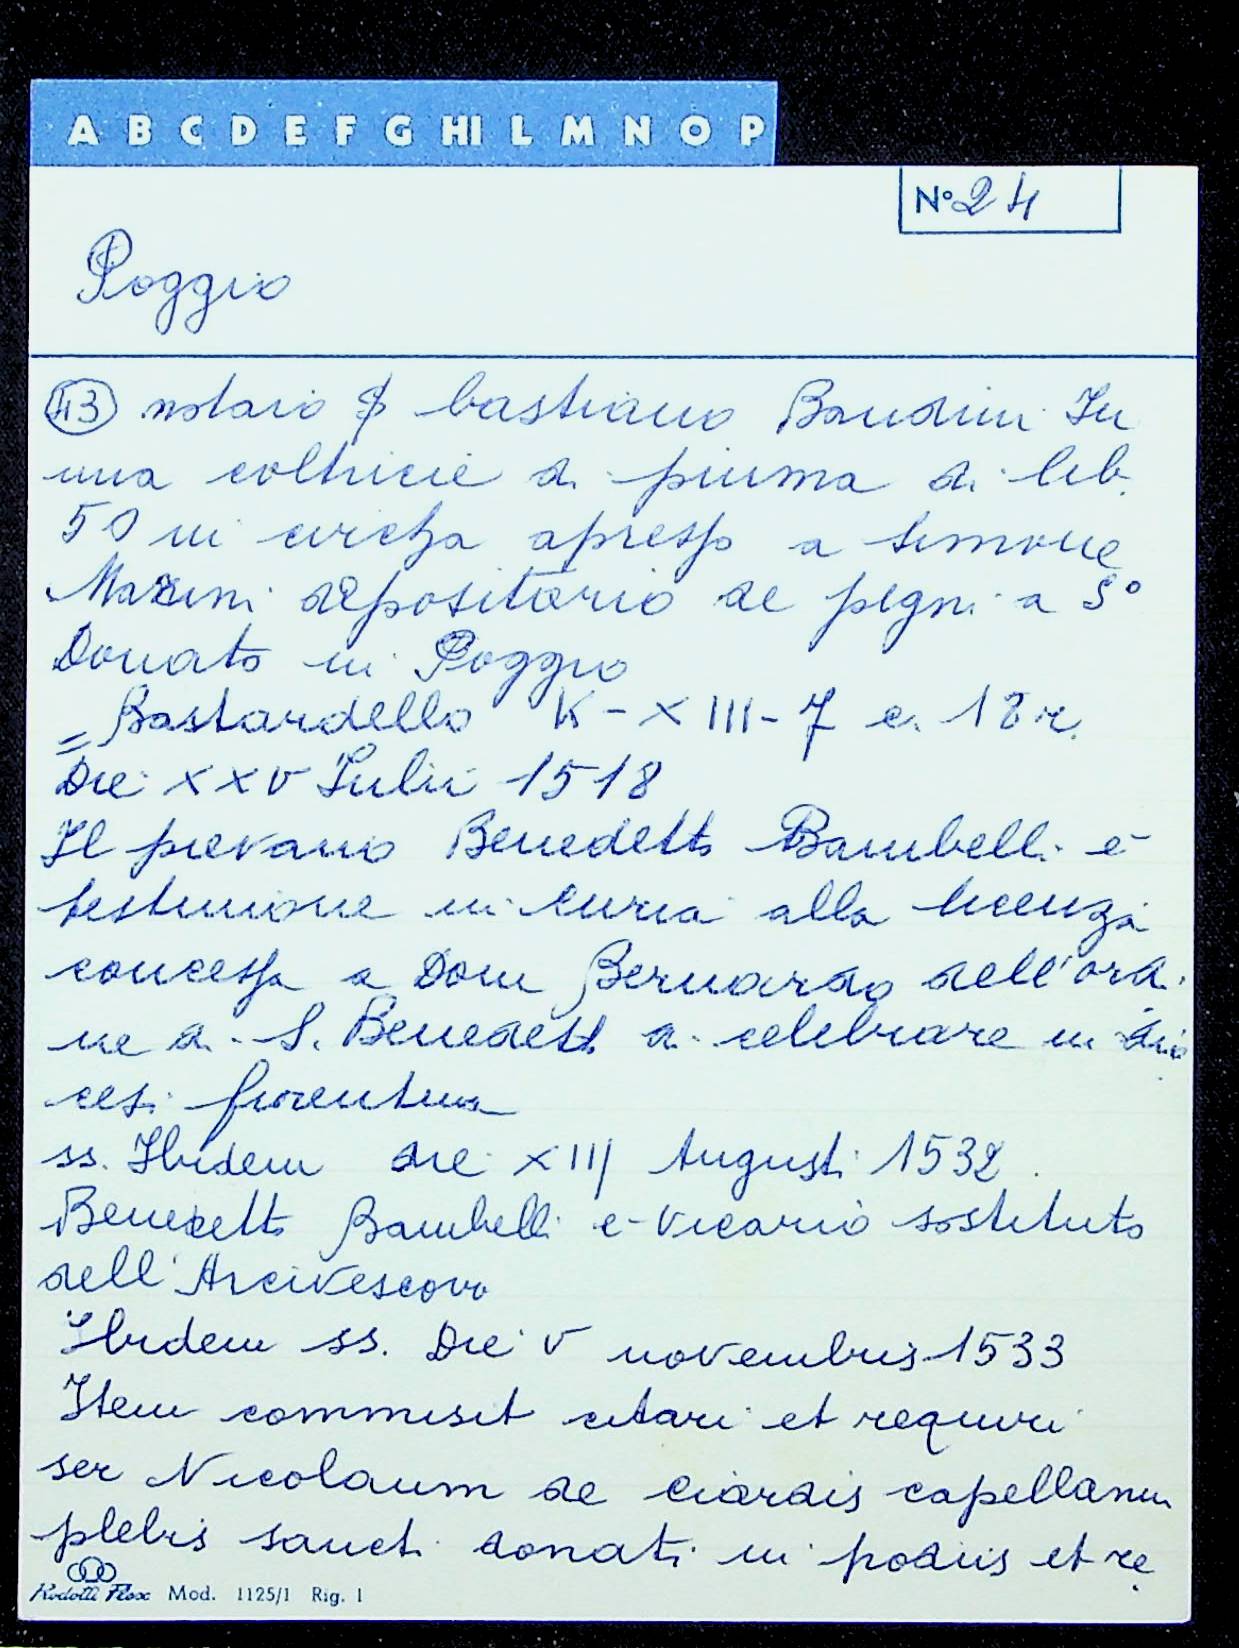 A B C D E F G HI L M N O P
N° 24
Poggio
43 notaio $ bastiano Bandini In
una coltricie di piuma di lib.
50 in circha apresso a simone
Mazini depositario de pegni a S°
Donato in Poggio
= Bastardello K - XIII - 7 c. 18 r.
Die XXV Iulii 1518
Il pievano Benedetto Bambelli è
testimone in curia alla licenza
concessa a Dom Bernardo dell'ordi
ne di S. Benedetto di celebrare in dio
cesi fiorentina
ss. Ibidem die XIII Augusti 1532.
Benedetto Bambelli è vicario sostituto
dell'Arcivescovo
Ibidem ss. Die V novembris 1533
Item commisit citari et requiri
ser Nicolaum de Ciardis capellanum
plebis sancti donati in podiis et re
Rodotti Flex Mod. 1125/1 Rig. 1